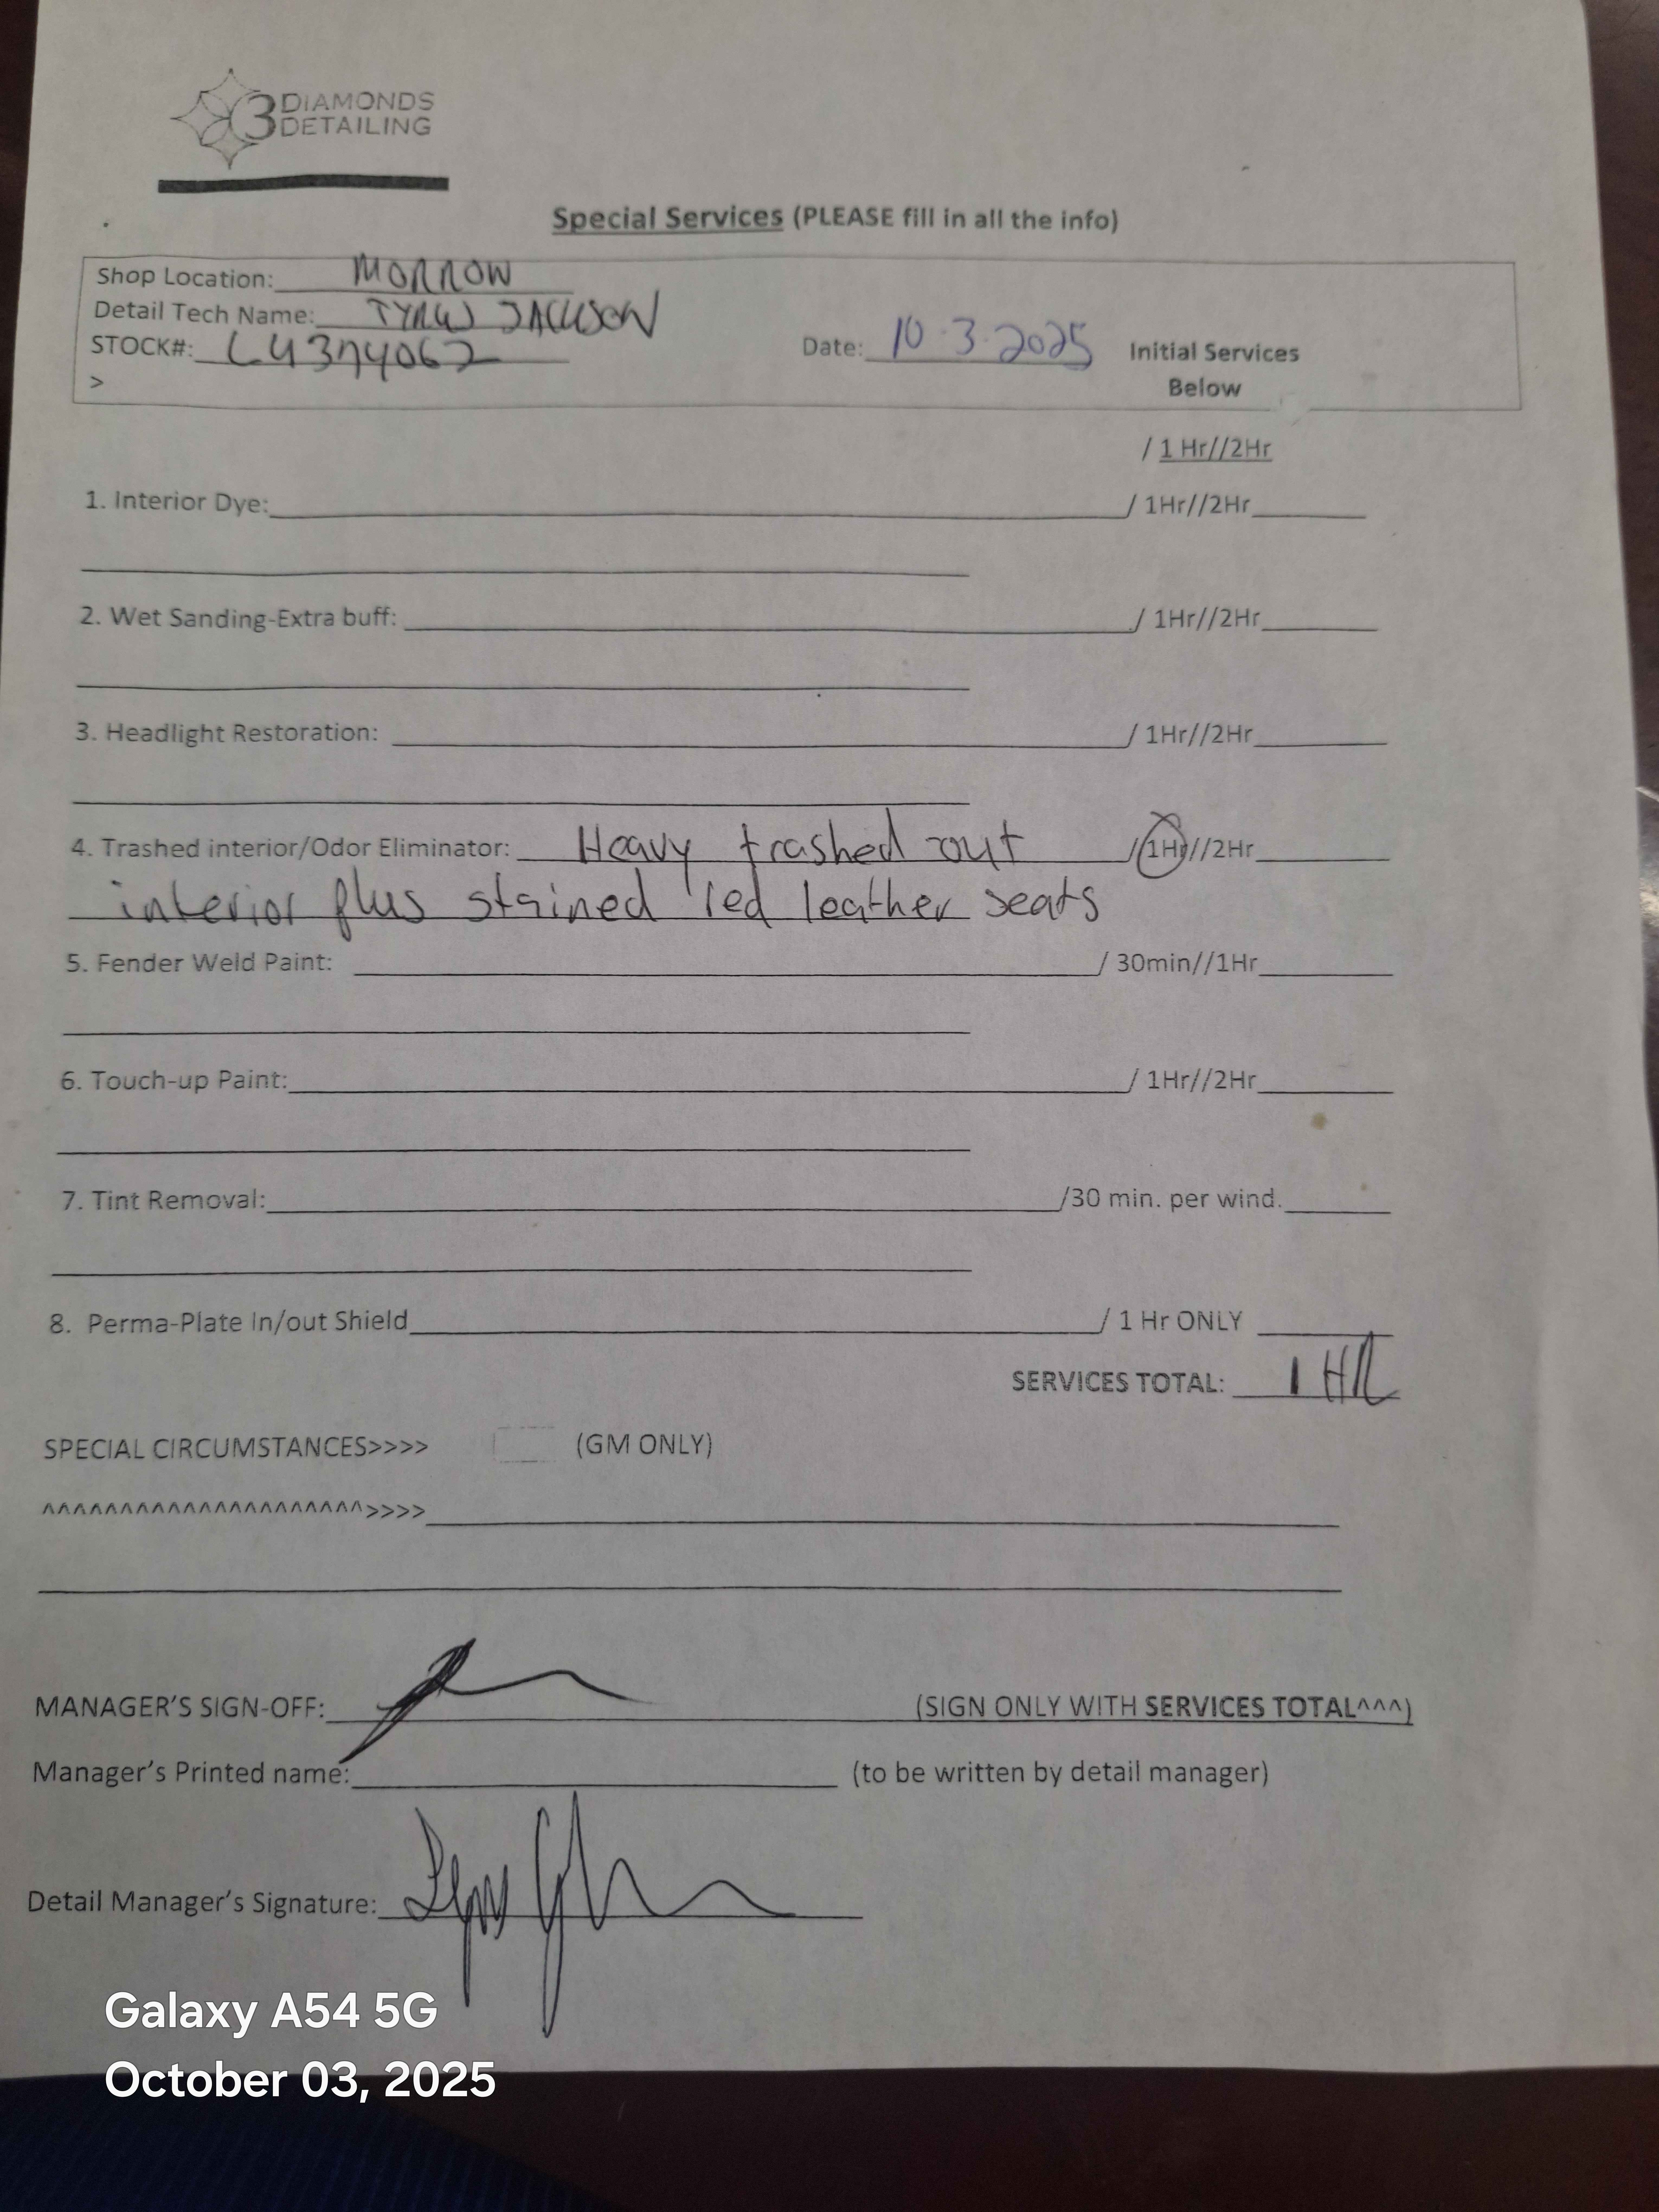 3 DIAMONDS
DETAILING
Special Services (PLEASE fill in all the info)
Shop Location: MORROW
Detail Tech Name: JACKSON
STOCK#:
Date: 10.3.2025 Initial Services
>
Below
/ 1 Hr//2Hr
1. Interior Dye: / 1Hr//2Hr
2. Wet Sanding-Extra buff: / 1Hr//2Hr
3. Headlight Restoration: / 1Hr//2Hr
4. Trashed interior/Odor Eliminator: Heavy trashed out / 1Hr//2Hr
interior plus stained red leather seats
5. Fender Weld Paint: / 30min//1Hr
6. Touch-up Paint: / 1Hr//2Hr
7. Tint Removal: /30 min. per wind.
8. Perma-Plate In/out Shield / 1 Hr ONLY
SERVICES TOTAL: 1 HR
SPECIAL CIRCUMSTANCES>>>> (GM ONLY)
^^^^^^^^^^^^^^^^^^^^^>>>>
MANAGER'S SIGN-OFF: (SIGN ONLY WITH SERVICES TOTAL^^^)
Manager's Printed name: (to be written by detail manager)
Detail Manager's Signature:
Galaxy A54 5G
October 03, 2025